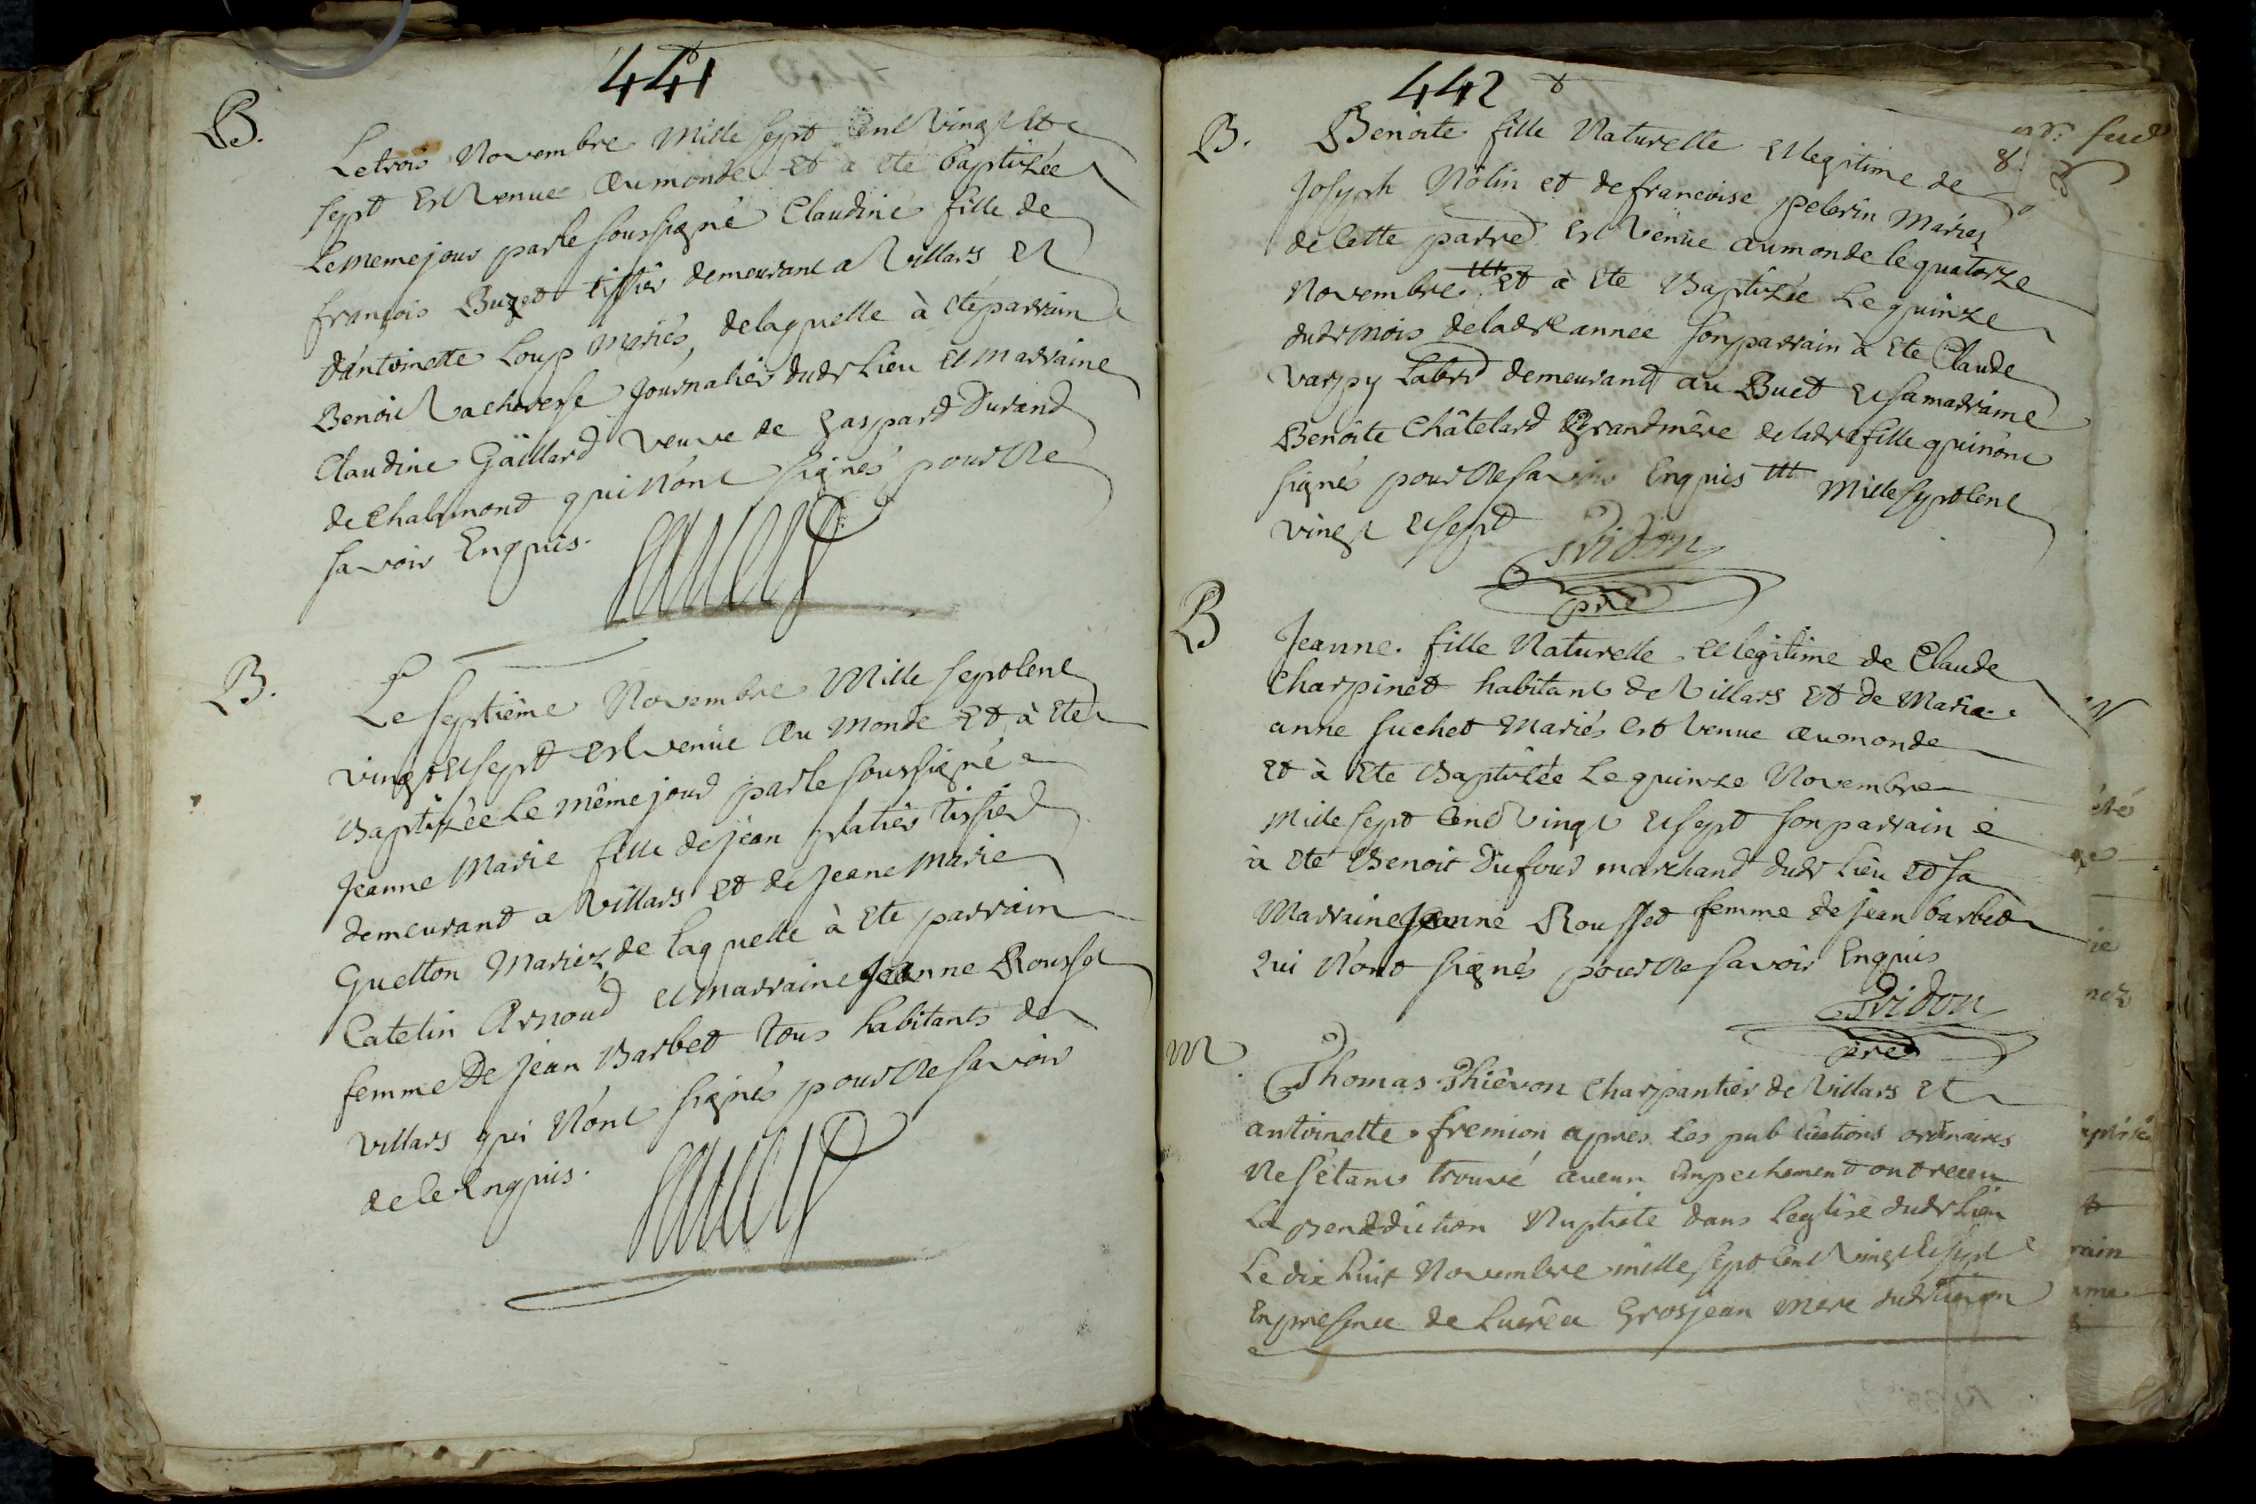 441
B.
Le trois Novembre Mille sept Cent Vingt Et
sept Est Venue au monde et à eté baptizée
Le meme jour par le soussigné Claudine fille de
françois Buget tissier demeurant a Villars Et
d'antoinette Loup Mariés, de laquelle à eté parrain
Benoit Vacheresse Journalier dudt Lieu et Marraine
Claudine Gaillard Veuve de gaspard Durand
de Chalamond qui N'ont signés pour Ne
savoir Enquis.
B.
Le septième Novembre Mille sept Cent
vingt Et sept est venüe Au Monde et à Eté
Baptizée Le même jour par le soussigné
Jeanne Marie fille de jean platier tissier
demeurant a Villars et de Jeane Marie
Guetton Mariez de laquelle à Eté parrain
Catelin Arnoud et marraine Jeanne Rousset
femme De jean Barbet Tous habitants de
villars qui N'ont signés pour Ne savoir
de Ce Enquis.
442
B.
Benoite fille Naturelle Et legitime de
Joseph Nolin et de francoise pelerin Mariez
de Cette parrse Est Venüe au monde le quatorze
Novembre ttt Et à Ete Baptizée Le quinze
dudt Mois de ladte année son parrain à Ete Claude
varpy Labr demeurant au Buet Et sa marraine
Benoite Châtelard Grandmère de ladte fille qui n'ont
signés pour Ne savoir Enquis ttt Mille sept Cent
vingt Et sept
Pridon
pre
B
Jeanne fille Naturelle et legitime de Claude
Charpinet habitant de Villars Et de Marie
anne suchet Mariés est Venue au monde
et à Ete Baptizée Le quinze Novembre
Mille sept Cent Vingt Et sept son parrain
à eté Benoit Dufour marchand dudt Lieu et sa
Marraine Jeanne Rousset femme de jean barbet
Qui N'ont signés pour Ne savoir Enquis
Pridon
pre
M.
Thomas Thiévon Charpantier de Villars Et
antoinette fremion apres les publications ordinaires
Ne s'étant trouvé aucun Empechement ont receu
La Benediction Nuptiale dans l'eglise dudt Lieu
Le dix huit Novembre mille sept Cent Vingt Et sept
En presence de Grosjean Mere dudt